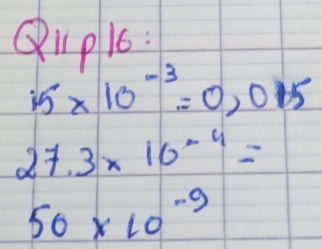 Q11 p16:
15 × 10⁻³ = 0,015
27.3 × 10⁻⁴ =
50 × 10⁻⁹